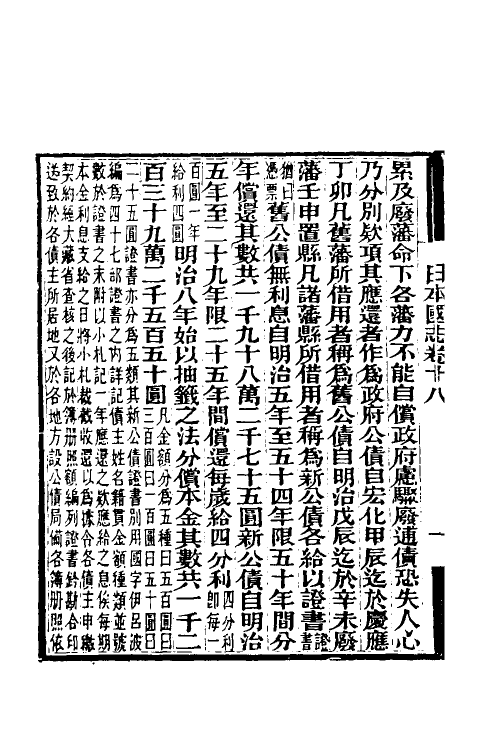 日本國志卷十八
一
累及廢藩命下各藩力不能自償政府慮驟廢逋債恐失人心
乃分別欵項其應還者作爲政府公債自宏化甲辰迄於慶應
丁卯凡舊藩所借用者稱爲舊公債自明治戊辰迄於辛未廢
藩壬申置縣凡諸藩縣所借用者稱爲新公債各給以證書證書
猶曰憑票舊公債無利息自明治五年至五十四年限五十年間分
年償還其數共一千九十八萬二千七十五圓新公債自明治
五年至二十九年限二十五年間償還每歲給四分利四分利卽每一
百圓一年給利四圓明治八年始以抽籤之法分償本金其數共一千二
百三十九萬二千五百五十圓凡金額分爲五種曰五百圓曰三百圓曰一百圓曰五十圓曰
二十五圓證書亦分爲五類其新公債證書別用國字伊呂波
編爲四十七部證書之內詳記債主姓名籍貫金額種類並號
數於證書之末附以小札記一年應還之欵應給之息俟每期
本金利息支給之日將小札裁截收還以爲據令各債主申繳
契約經大藏省查核之後記於簿册照額編列證書給勘合印
送致於各債主所居地又於各地方設公債局備各簿册照依